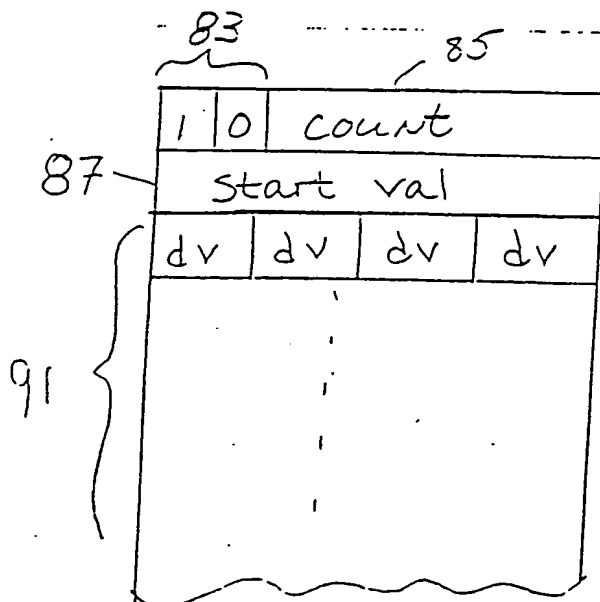 83 85
1 0 count
87 start val
dv dv dv dv
91